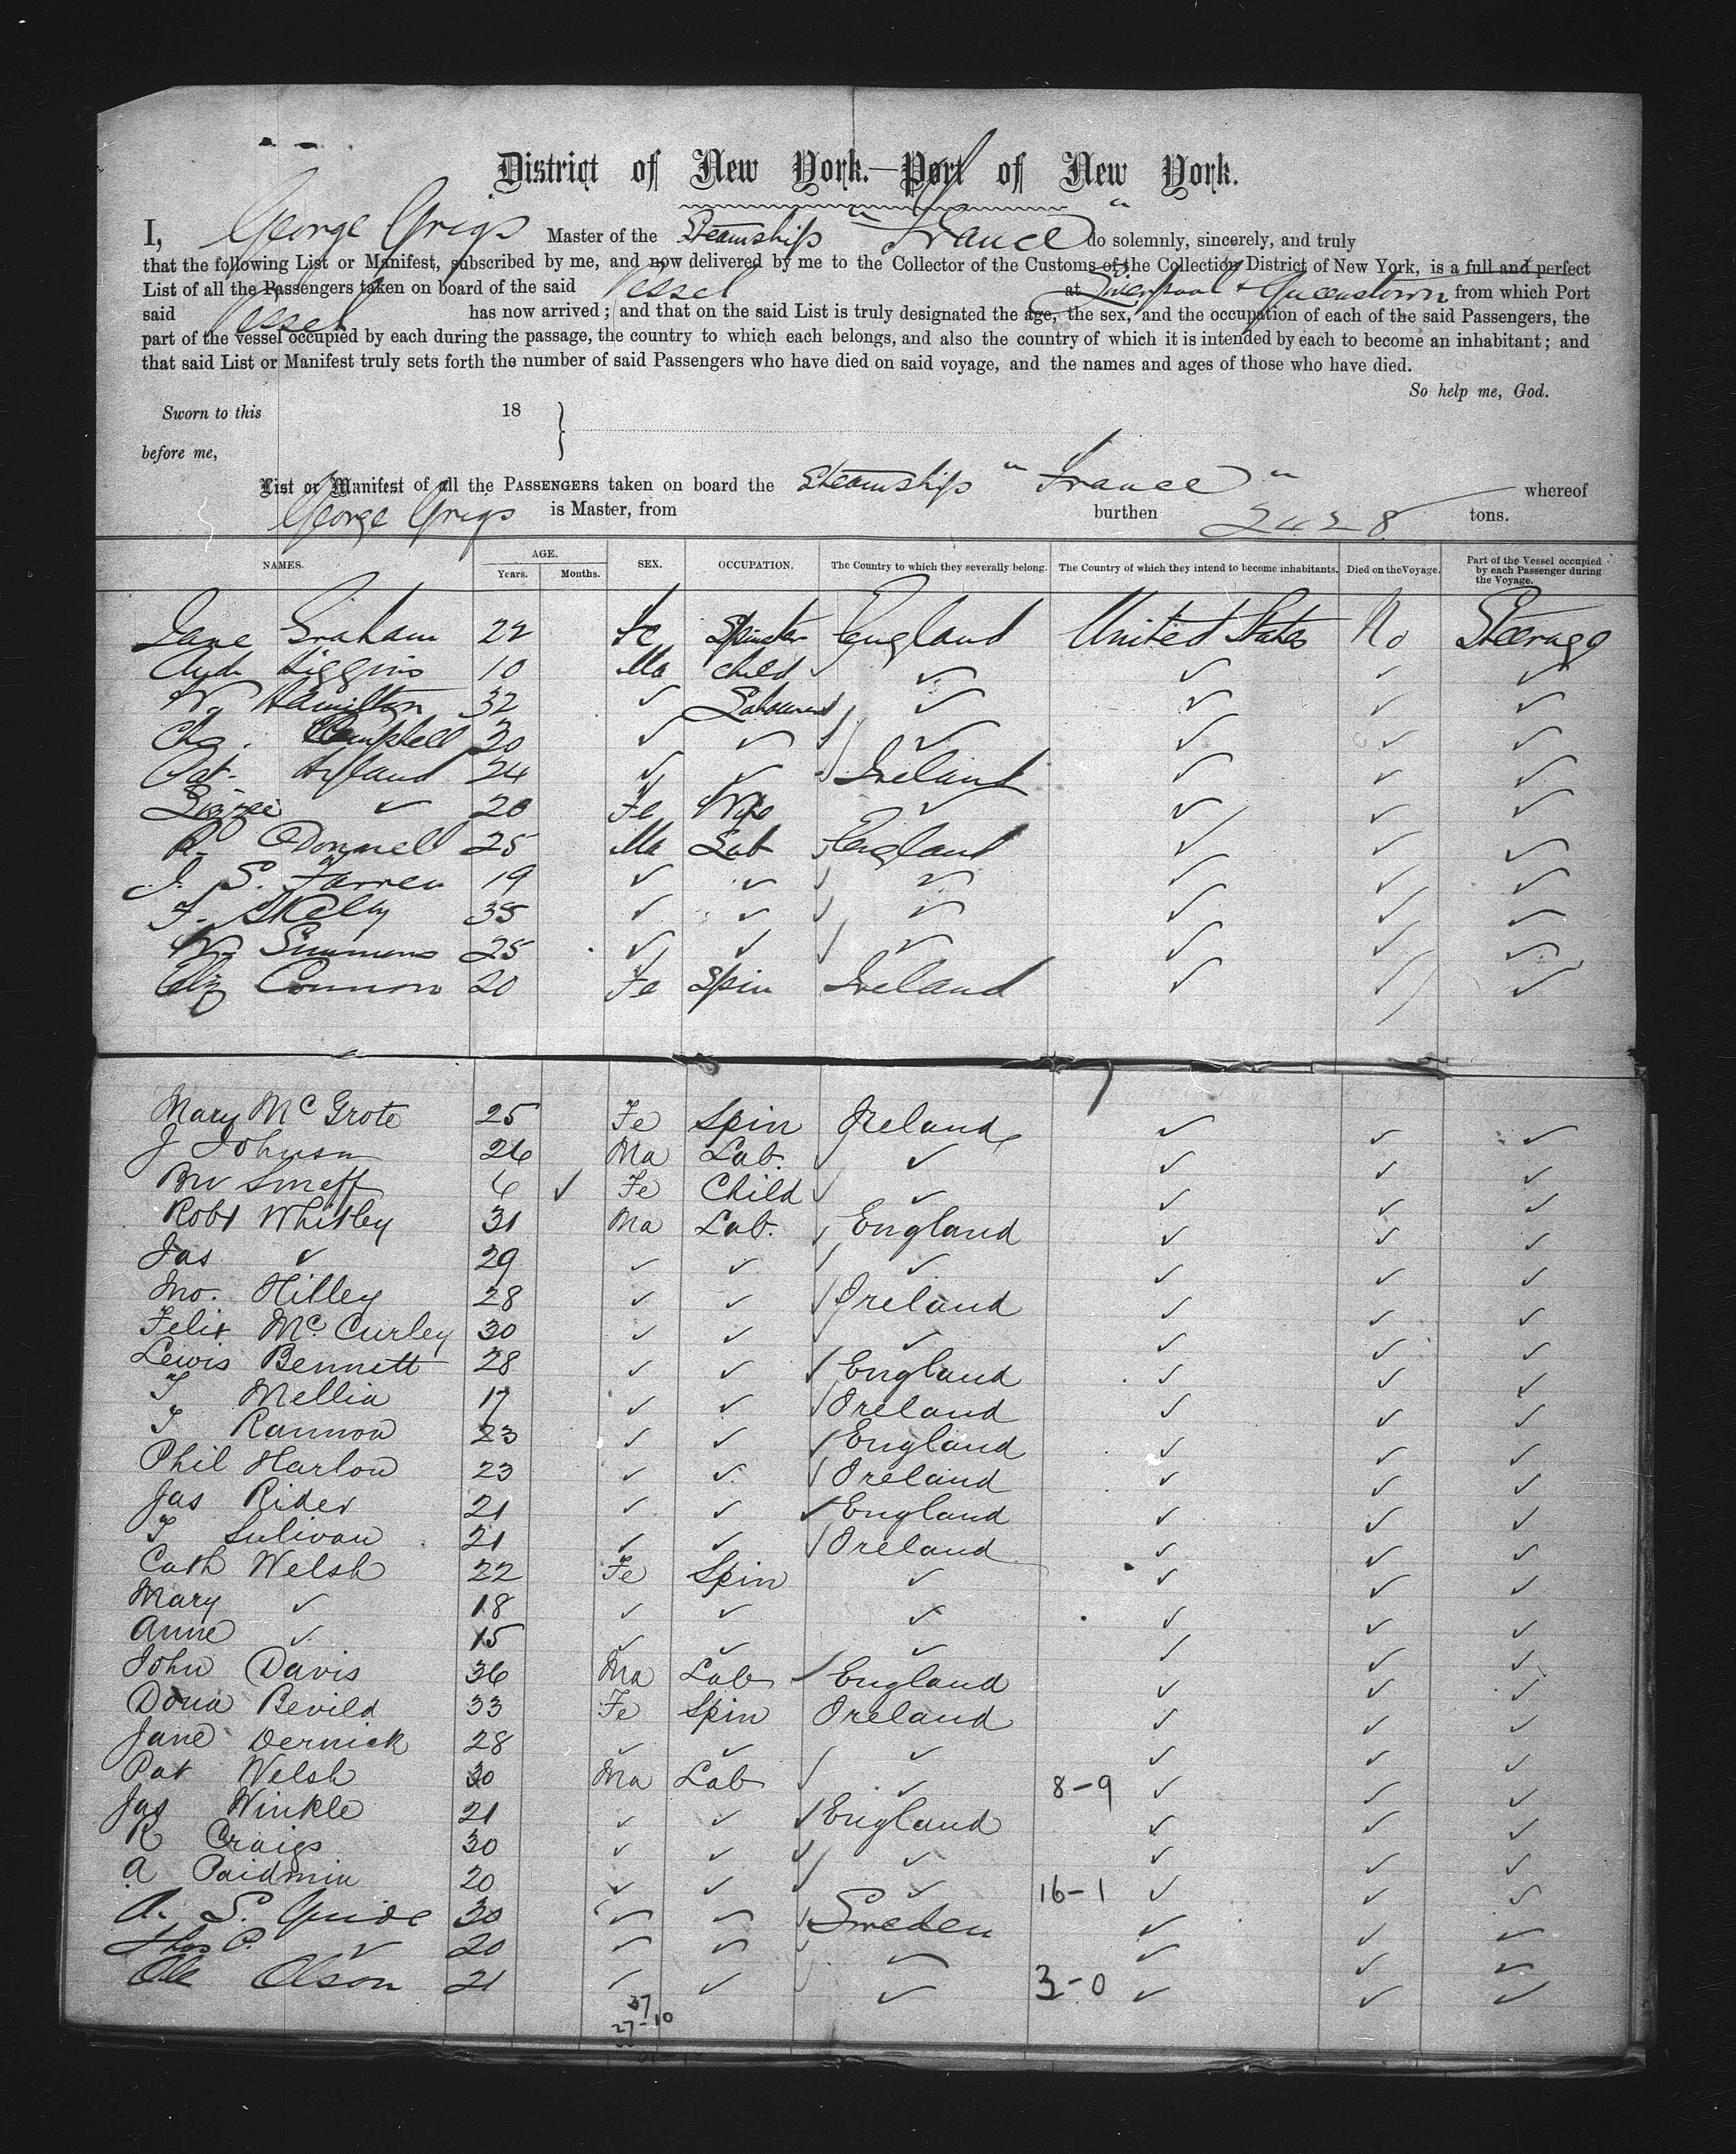 District of New York.—Port of New York.
I, George Grigs Master of the Steamship "France" do solemnly, sincerely, and truly
that the following List or Manifest, subscribed by me, and now delivered by me to the Collector of the Customs of the Collection District of New York, is a full and perfect
List of all the Passengers taken on board of the said Vessel at Liverpool & Queenstown from which Port
said Vessel has now arrived; and that on the said List is truly designated the age, the sex, and the occupation of each of the said Passengers, the
part of the vessel occupied by each during the passage, the country to which each belongs, and also the country of which it is intended by each to become an inhabitant; and
that said List or Manifest truly sets forth the number of said Passengers who have died on said voyage, and the names and ages of those who have died.
So help me, God.
Sworn to this 18
before me,
List or Manifest of all the PASSENGERS taken on board the Steamship "France" whereof
George Grigs is Master, from burthen 2428 tons.
NAMES. AGE. Years. Months. SEX. OCCUPATION. The Country to which they severally belong. The Country of which they intend to become inhabitants. Died on the Voyage. Part of the Vessel occupied by each Passenger during the Voyage.
Jane Graham 22 Fe Spinster England United States No Steerage
Higgins 10 Ma Child ✓ ✓ ✓ ✓
Wm Hamilton 32 ✓ Labourer ✓ ✓ ✓ ✓
Chs. Campbell 30 ✓ ✓ ✓ ✓ ✓ ✓
Pat. Hyland 24 ✓ ✓ Ireland ✓ ✓ ✓
Lizzie ✓ 20 Fe Wife ✓ ✓ ✓ ✓
P. O'Donnel 25 Ma Lab England ✓ ✓ ✓
J. S. Farren 19 ✓ ✓ ✓ ✓ ✓ ✓
F. Skelly 35 ✓ ✓ ✓ ✓ ✓ ✓
Wm Simmons 25 ✓ ✓ ✓ ✓ ✓ ✓
Eliz Connon 20 Fe Spin Ireland ✓ ✓ ✓
Mary McGrote 25 Fe Spin Ireland ✓ ✓ ✓
J Johnson 26 Ma Lab. ✓ ✓ ✓ ✓
Smeff 6 ✓ Fe Child ✓ ✓ ✓ ✓
Robt Whitley 31 Ma Lab. England ✓ ✓ ✓
Jas ✓ 29 ✓ ✓ ✓ ✓ ✓ ✓
Jno. Hilley 28 ✓ ✓ Ireland ✓ ✓ ✓
Felix McCurley 30 ✓ ✓ ✓ ✓ ✓ ✓
Lewis Bennett 28 ✓ ✓ England ✓ ✓ ✓
T Mellia 17 ✓ ✓ Ireland ✓ ✓ ✓
T Rannon 23 ✓ ✓ England ✓ ✓ ✓
Phil Harlow 23 ✓ ✓ Ireland ✓ ✓ ✓
Jas Rider 21 ✓ ✓ England ✓ ✓ ✓
T Sulivan 21 ✓ ✓ Ireland ✓ ✓ ✓
Cath Welsh 22 Fe Spin ✓ ✓ ✓ ✓
Mary ✓ 18 ✓ ✓ ✓ ✓ ✓ ✓
Anne ✓ 15 ✓ ✓ ✓ ✓ ✓ ✓
John Davis 36 Ma Lab England ✓ ✓ ✓
Dona Bevild 33 Fe Spin Ireland ✓ ✓ ✓
Jane Dernick 28 ✓ ✓ ✓ ✓ ✓ ✓
Pat Welsh 30 Ma Lab ✓ 8-9 ✓ ✓ ✓
Jas Winkle 21 ✓ ✓ England ✓ ✓ ✓
R Craigs 30 ✓ ✓ ✓ ✓ ✓ ✓
A Paidmin 20 ✓ ✓ ✓ 16-1 ✓ ✓ ✓
A. S. Guide 30 ✓ ✓ Sweden ✓ ✓ ✓
P. ✓ 20 ✓ ✓ ✓ ✓ ✓ ✓
Ole Olson 21 ✓ ✓ ✓ 3-0 ✓ ✓ ✓
37
27-10